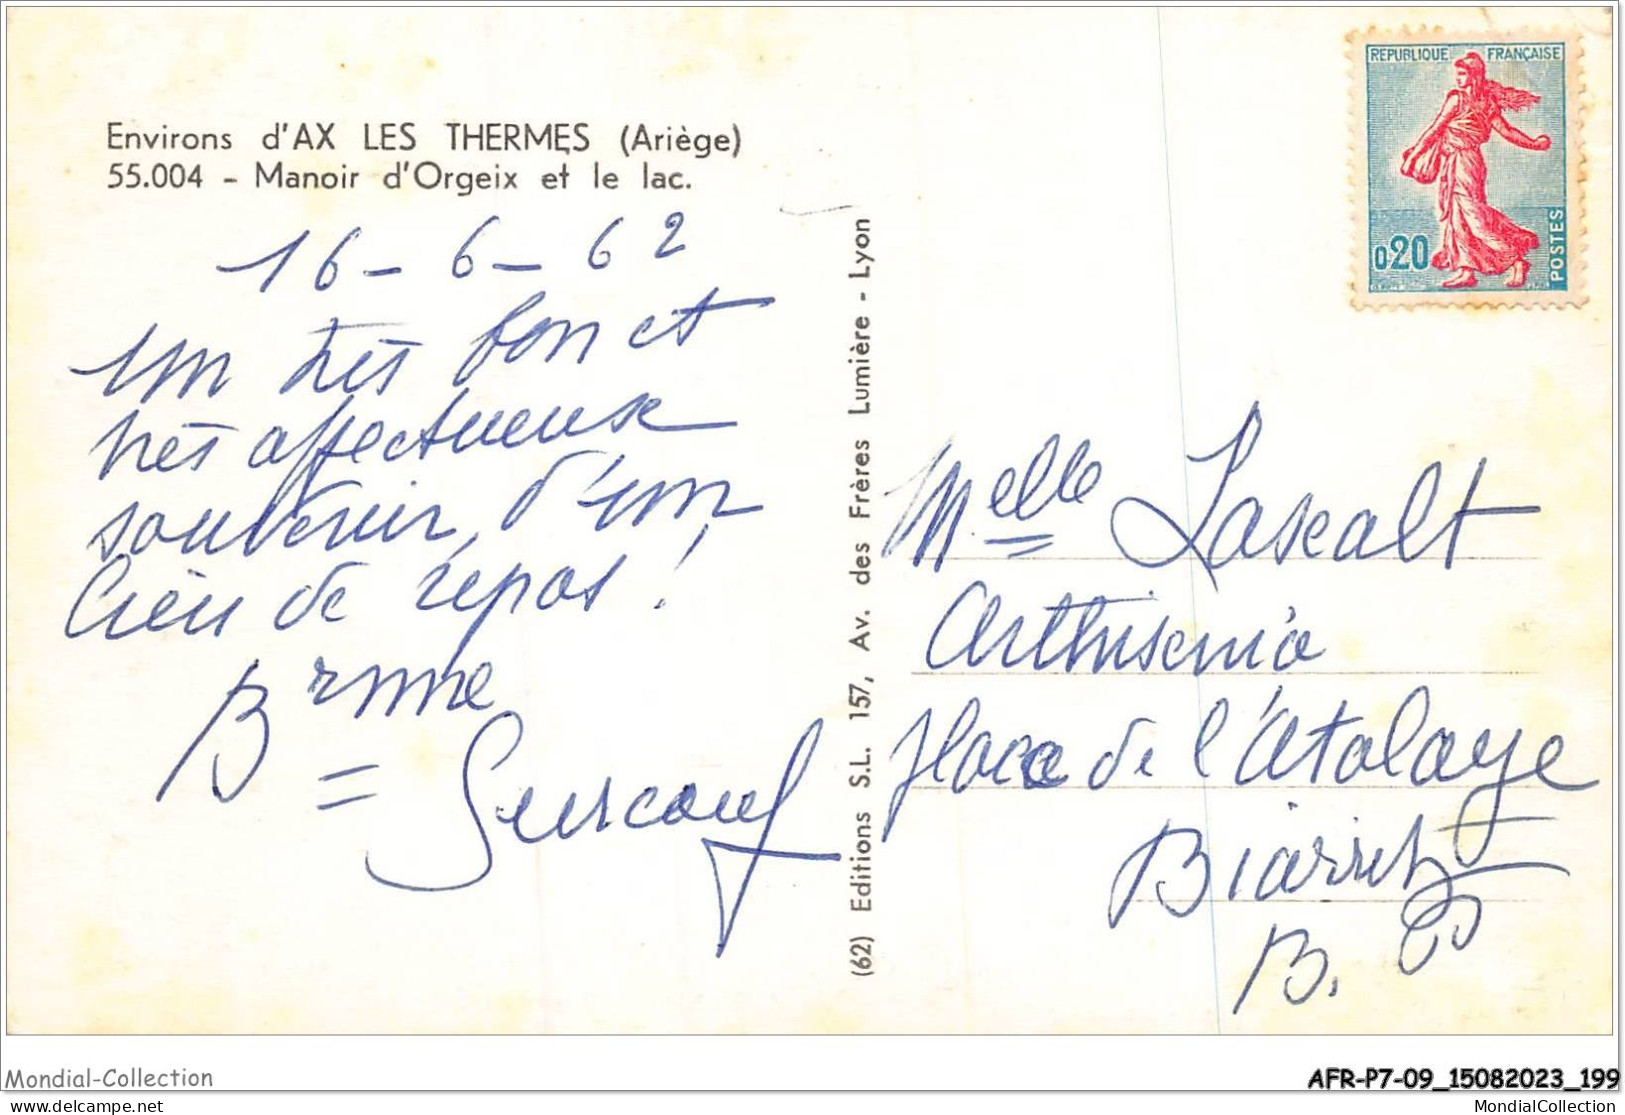 Environs d'AX LES THERMES (Ariège)
55.004 - Manoir d'Orgeix et le lac.
16-6-62
Un très bon et
très affectueux
souvenir d'un
lieu de repos !
Bnne
Surcouf
(62) Editions S.L. 157, Av. des Frères Lumière - Lyon
REPUBLIQUE FRANÇAISE
0,20
POSTES
Melle Lascalt
Arthisenia
place de l'Atalaye
Biarritz
B.
Mondial-Collection
AFR-P7-09_15082023_199
www.delcampe.net
MondialCollection